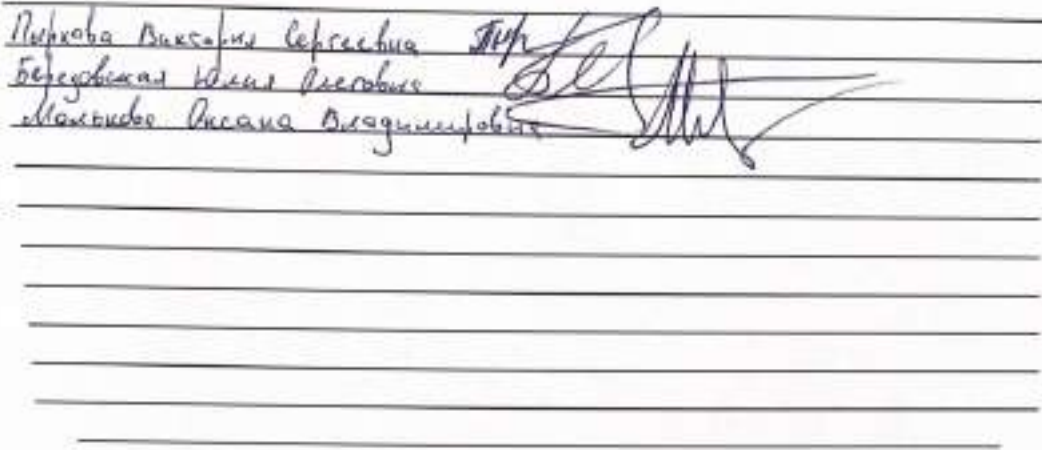 Пиркова Виктория Сергеевна
Юлия Олеговна
Малькова Оксана Владимировна